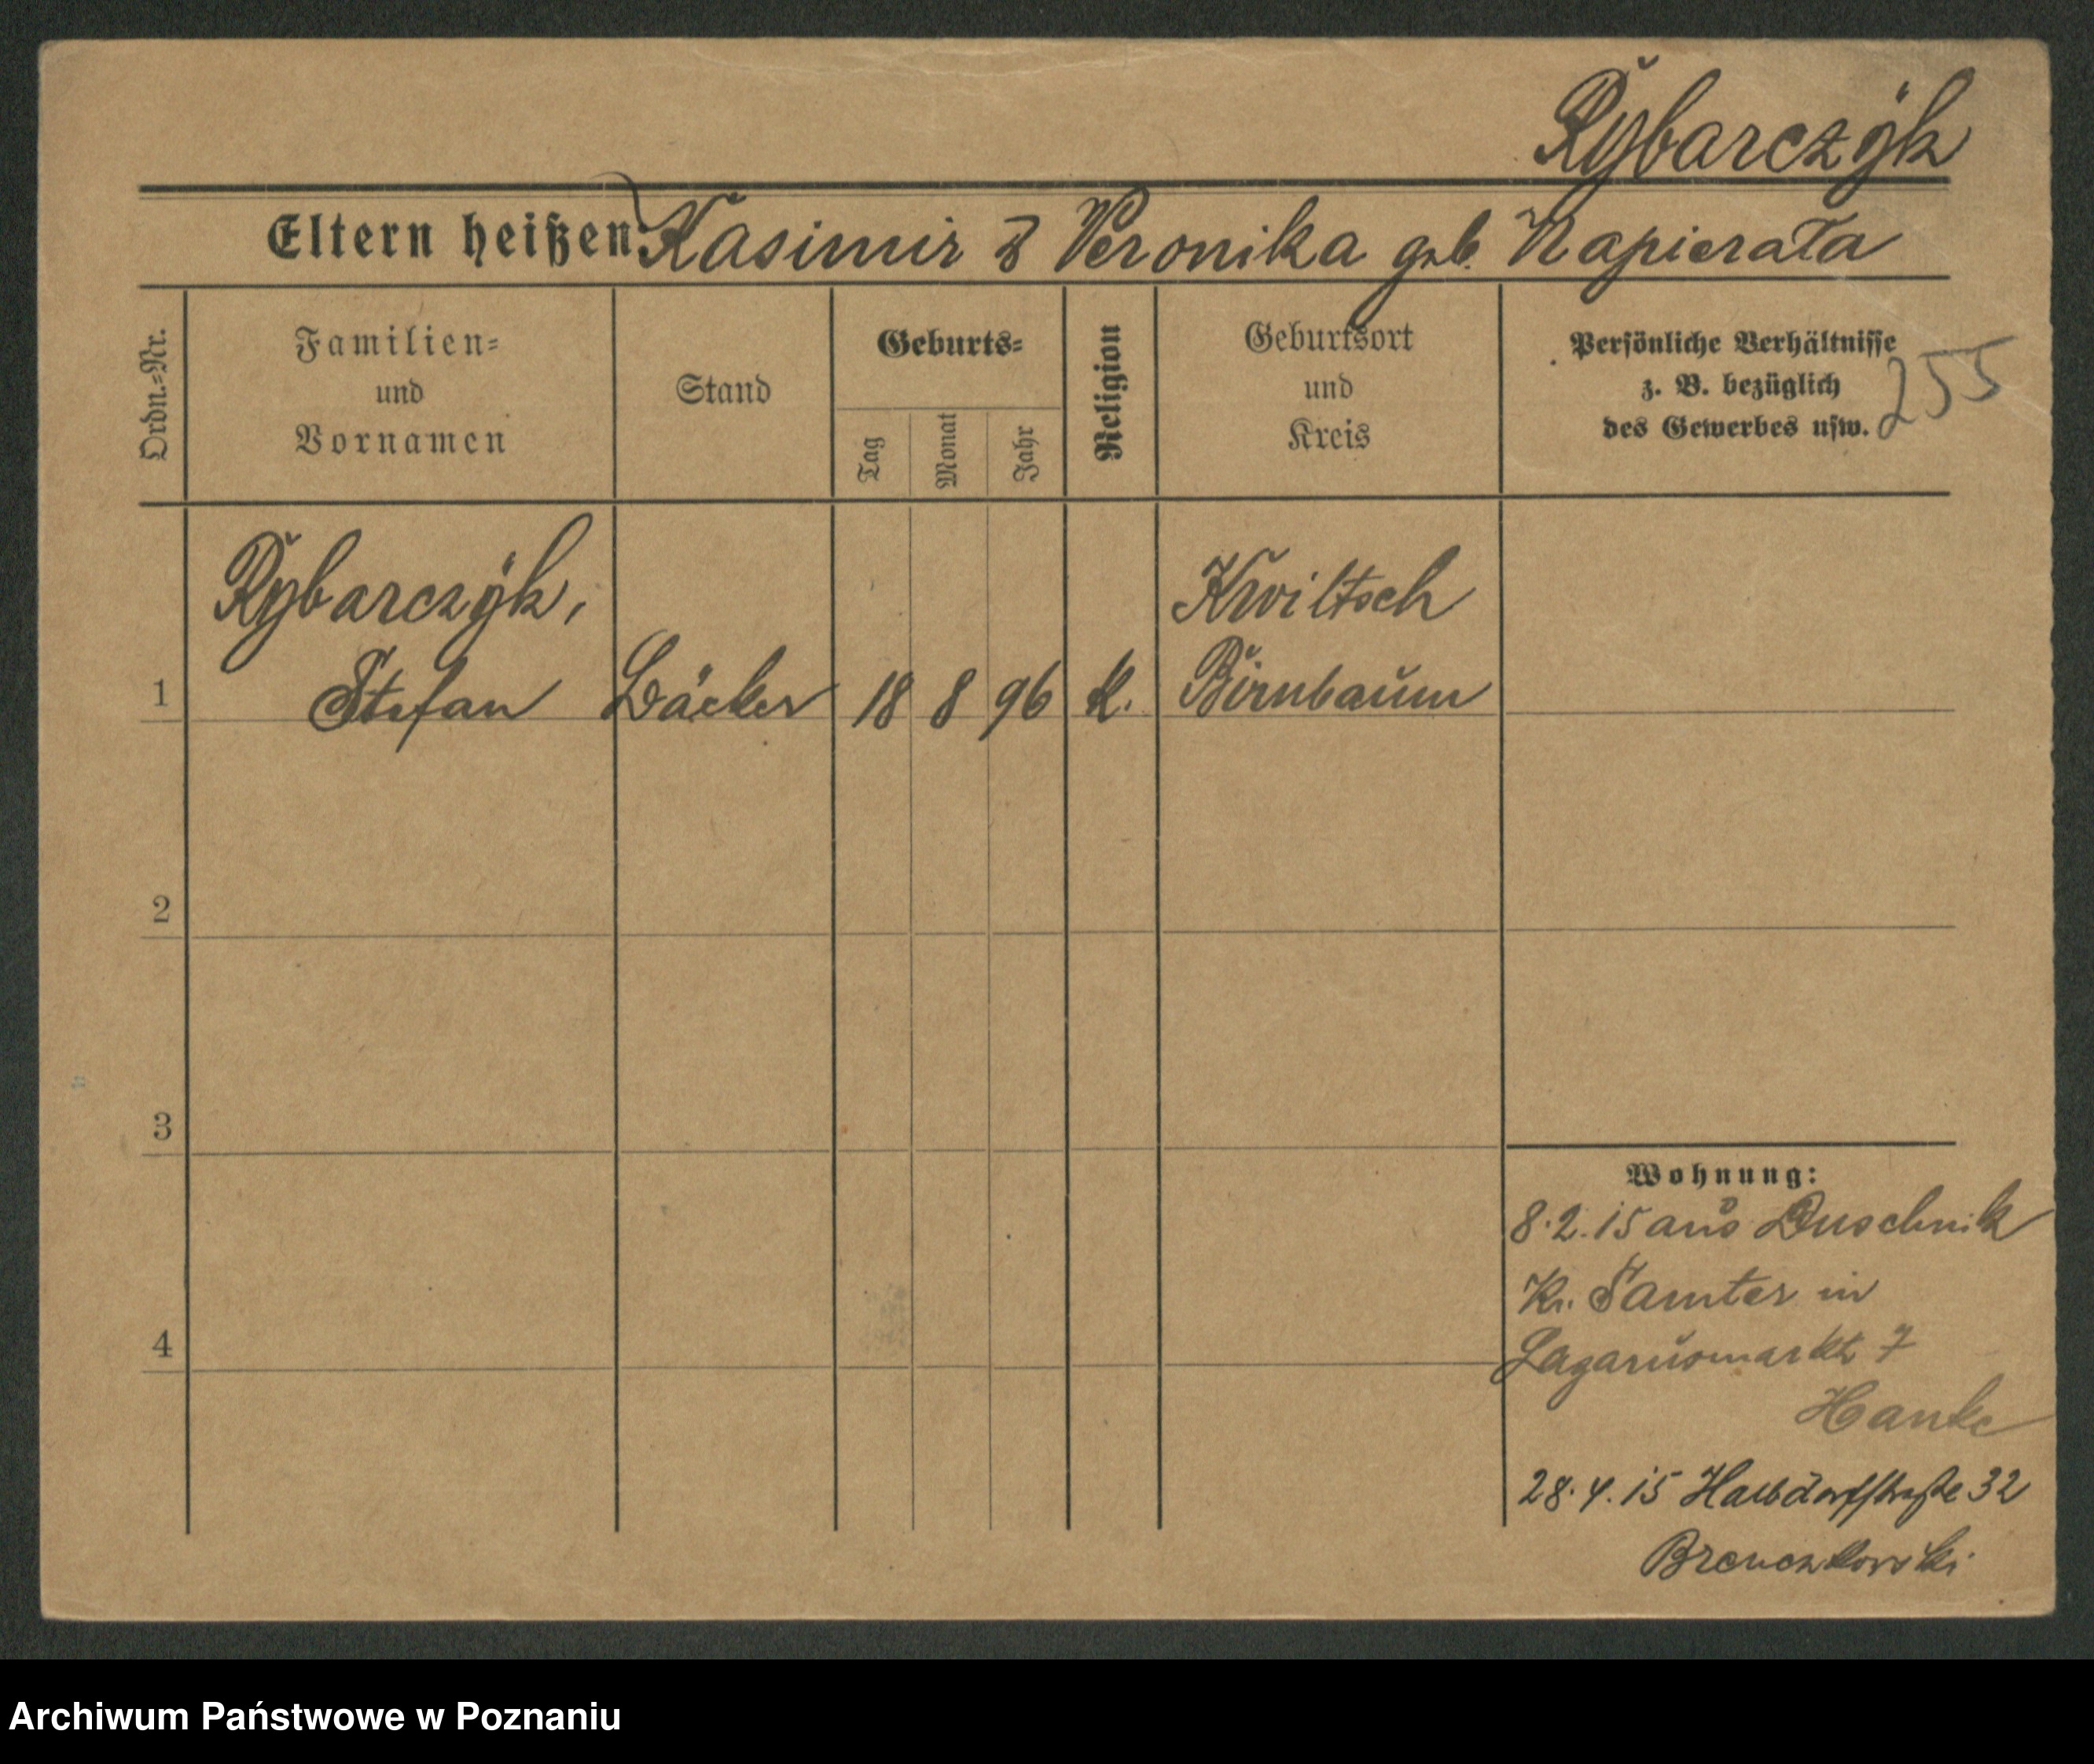 Rybarczÿk
Eltern heißen: Kasimir & Veronika geb. Napierała
Ordn.-Nr.
Familien-
und
Vornamen
Stand
Geburts-
Tag
Monat
Jahr
Religion
Geburtsort
und
Kreis
Persönliche Verhältnisse
z. B. bezüglich
des Gewerbes usw.
255
Rybarczÿk,
Kwiltsch
1 Stefan Bäcker 18 8 96 K. Birnbaum
2
3
4
Wohnung:
8.2.15 aus Duschnik
Kr. Samter in
Lazarusmarkt 7
Hanke
28.4.15 Halbdorfstraße 32
Archiwum Państwowe w Poznaniu